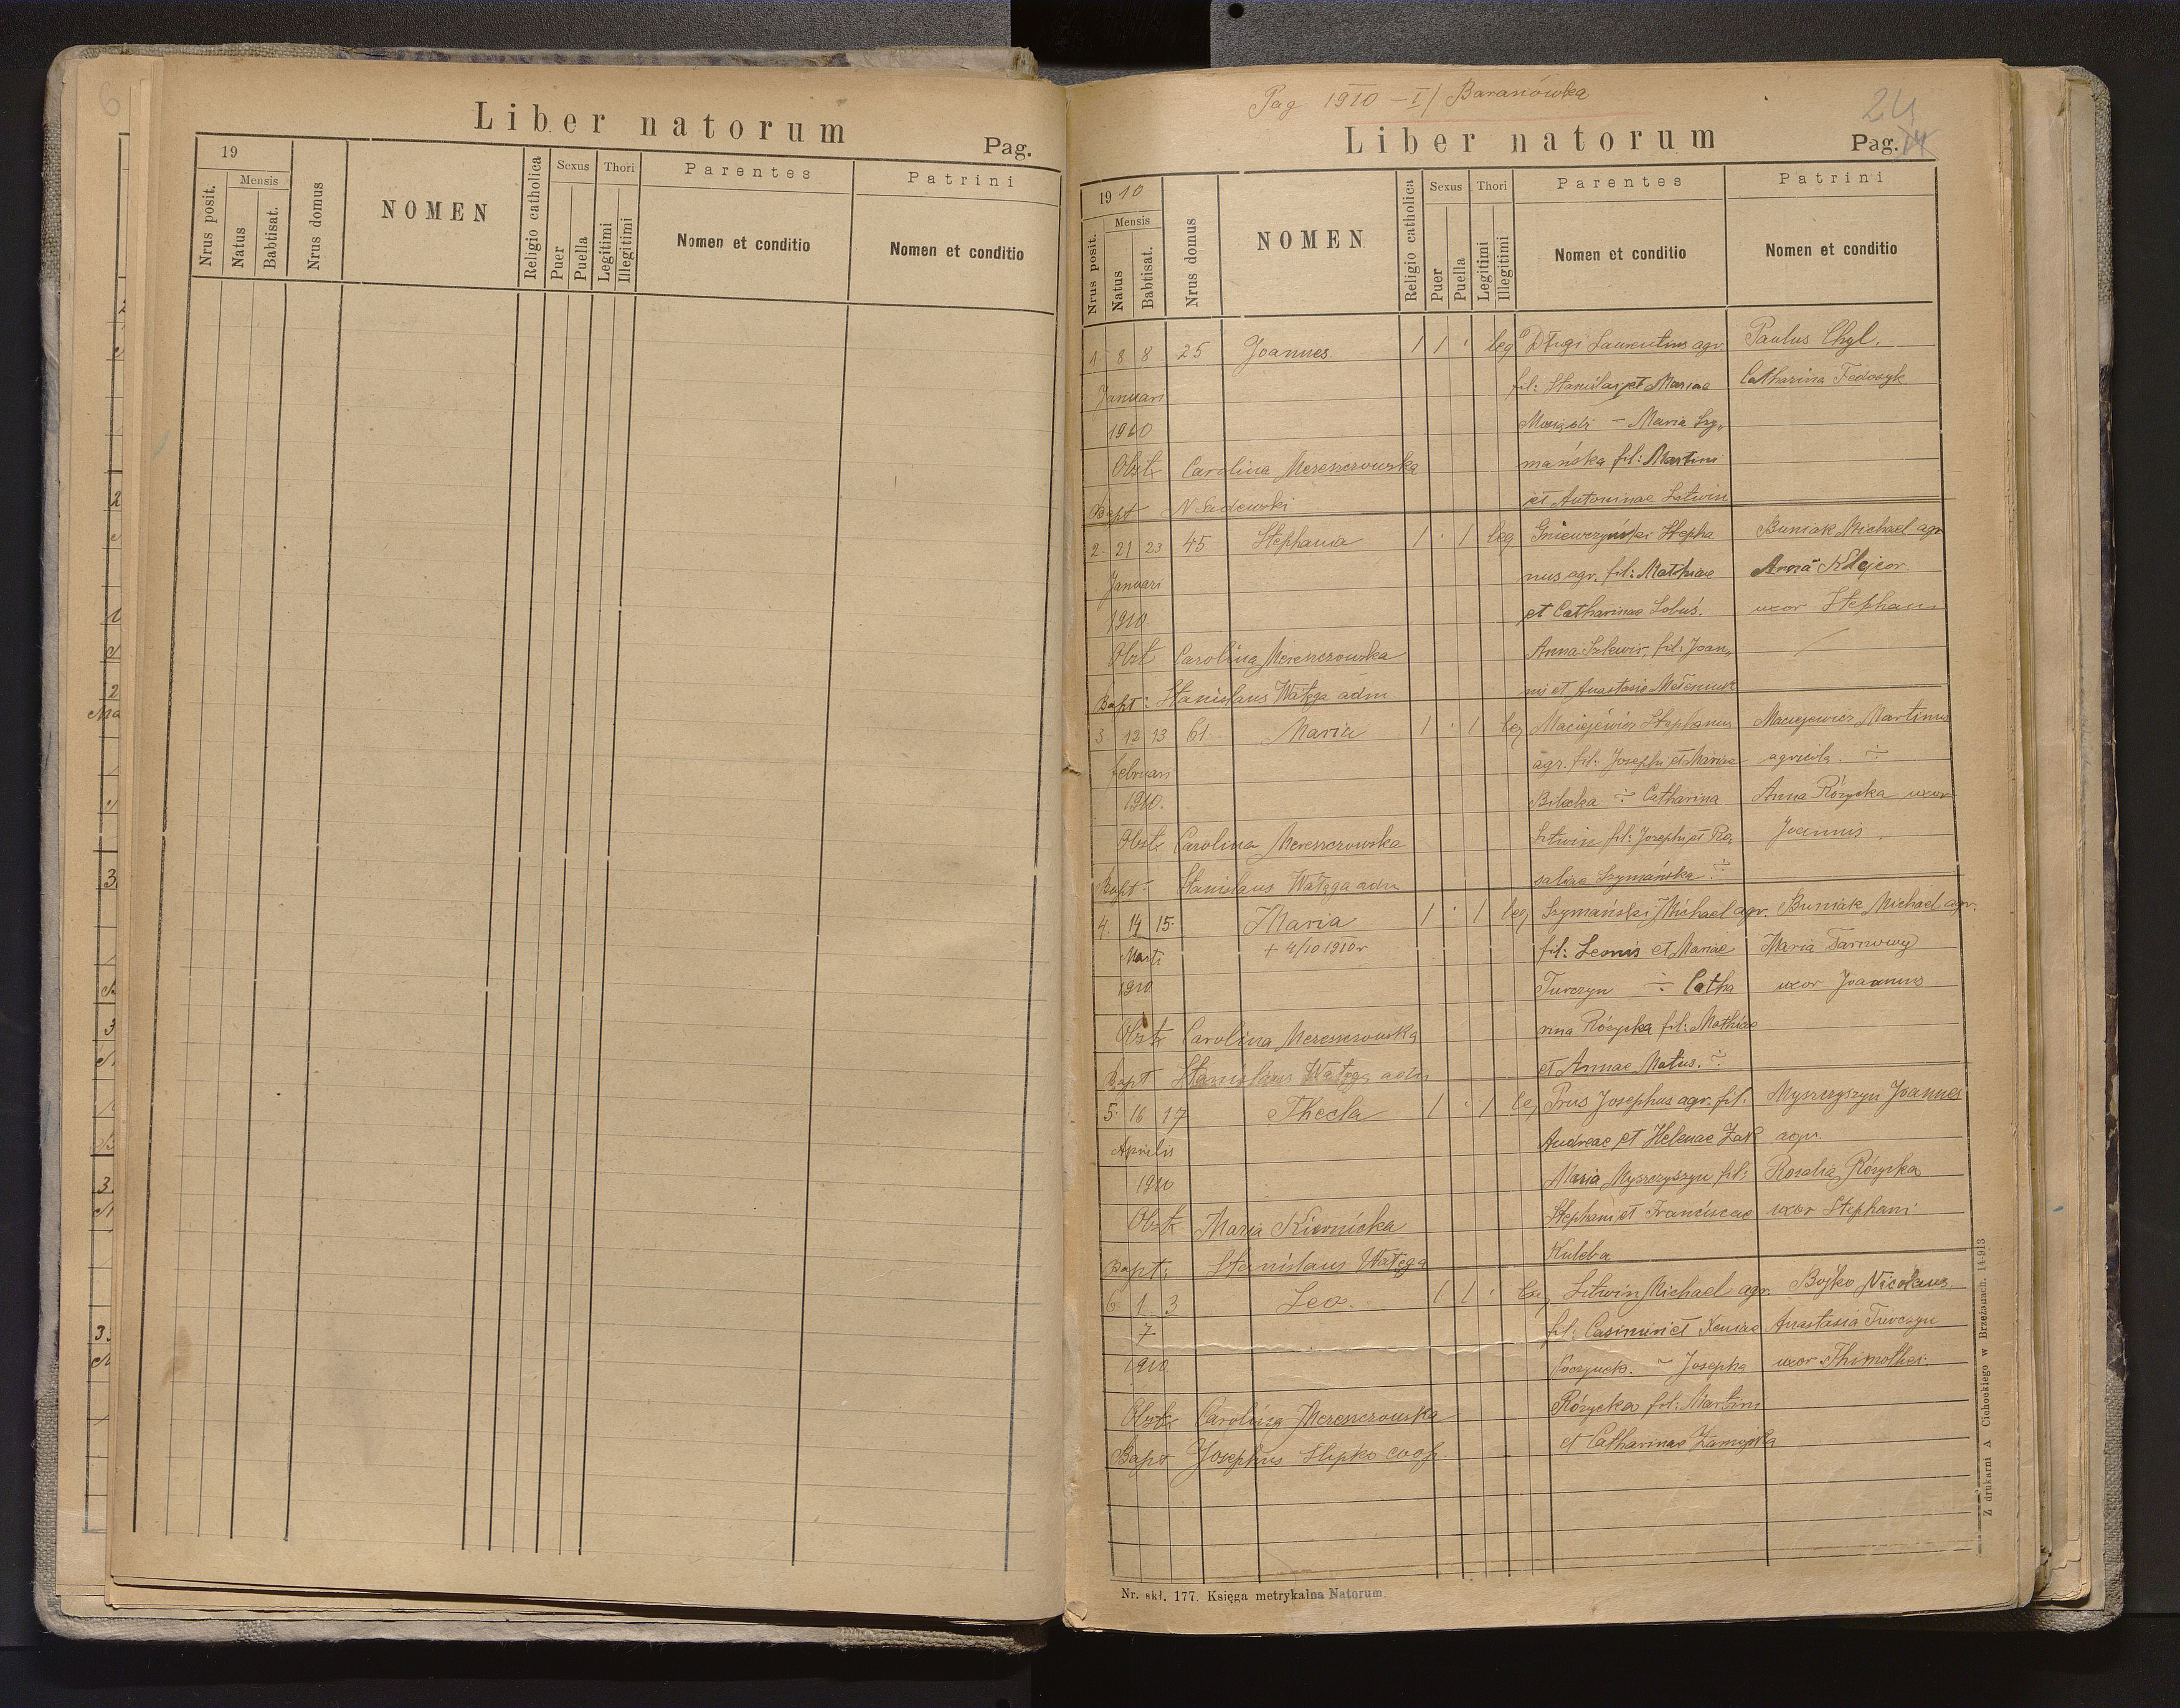 6
Liber natorum
Pag.
19
Mensis
Nrus posit.
Natus
Babtisat.
Nrus domus
NOMEN
Religio catholica
Sexus
Puer
Puella
Thori
Legitimi
Illegitimi
Parentes
Nomen et conditio
Patrini
Nomen et conditio
Pag 1910 - I/ Baranówka
24
Liber natorum
Pag.
1910
Mensis
Nrus posit.
Natus
Babtisat.
Nrus domus
NOMEN
Religio catholica
Sexus
Puer
Puella
Thori
Legitimi
Illegitimi
Parentes
Nomen et conditio
Patrini
Nomen et conditio
1 8 8 25 Joannes 1 1 · leg Długi Laurentius agr Paulus Chyl.
Januari fil: Stanislai et Mariae Catharina Fedosyk
1910 - Maria Szy„
Obst Carolina Mereszczowska mańska fil: Martini
Bapt N Sadowski et Antoninae Litwin
2. 21 23 45 Stephania 1 · 1 leg Gniewczyński Stepha Buniak Michael agr
Januari nus agr. fil: Mathiae Anna
1910 et Catharinae Łobuś. uxor Stephani
Obst Carolina Mereszczowska Anna fil: Joan„
Bapt: Stanislaus Watęga adm nis et Anastasia
3 12 13 61 Maria 1 · 1 leg Maciejewicz Stephanus Maciejewicz Martinus
Februari agr. fil: Josephi et Mariae agricola. ÷
1910. Bilecka ÷ Catharina Anna Różycka uxor
Obst Carolina Mereszczowska Litwin fil: Josephi et Ro„ Joannis
Bapt- Stanislaus Watęga adm saliae Szymańska ÷
4. 14 15. Maria 1 · 1 leg Szymański Michael agr. Buniak Michael agr.
Marti + 4/10 1910 r fil: Leonis et Mariae Maria Tarnowy
1910 Turczyn ÷ Catha uxor Joannis
Obst Carolina Mereszczowska rina Różycka fil: Mathiae
Bapt Stanislaus Watęga adm et Annae Matus. ÷
5. 16 17 Thecla 1 · 1 leg Prus Josephus agr. fil. Myszczyszyn Joannes
Aprilis Andreae et Helenae Żak agr.
1910 Maria Myszczyszyn fil: Rosalia Różycka
Obst Maria Kiernicka Stephani et Franciscae uxor Stephani
Bapt: Stanislaus Watęga Kuleba
6. 1 3 Leo. 1 1 · leg Litwin Michael agr. Bojko Nicolaus
7 fil: Casimiri et Xeniae Anastasia Turczyn
1910 ~ Josepha uxor Thimothei.
Obst Carolina Mereszczowska Różycka fil: Martini
Bapt Josephus Slipko coop. et Catharinae
Nr. skł. 177. Księga metrykalna Natorum.
Z drukarni A Cichockiego w Brzeżanach. 14-913